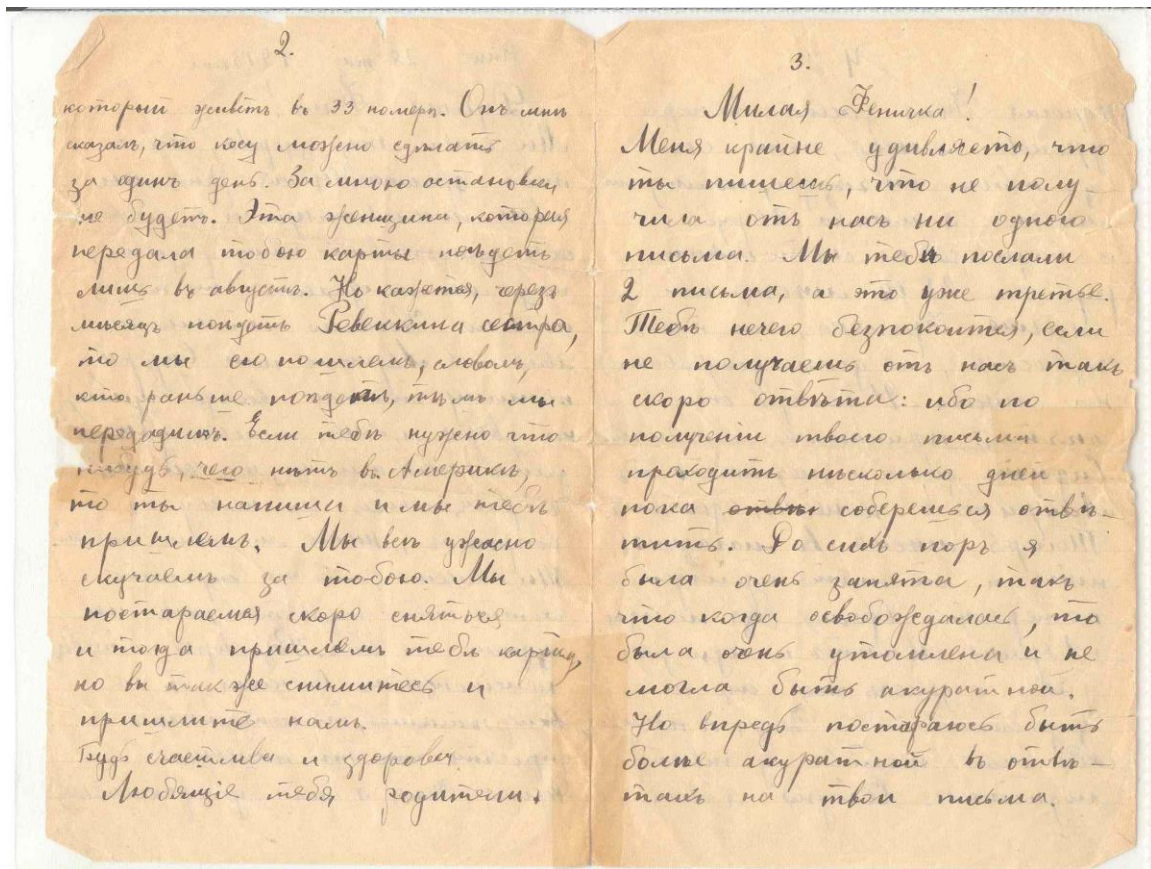 2.
который живетъ въ 33 номерѣ. Онъ мнѣ
сказалъ, что косу можно сдѣлать
за одинъ день. За мною остановки
не будетъ. Эта женщина, которая
передала тобою карты поѣдетъ
лишь въ августѣ. Но кажется, черезъ
мѣсяцъ поѣдетъ Ревеккина сестра,
то мы ею пошлемъ, словомъ,
кто раньше поѣдетъ, тѣмъ мы
передадимъ. Если тебѣ нужно что
нибудь, чего нѣтъ въ Америкѣ,
то ты напиши и мы тебѣ
пришлемъ. Мы всѣ ужасно
скучаемъ за тобою. Мы
постараемся скоро сняться
и тогда пришлемъ тебѣ карты,
но вы также снимитесь и
пришлите намъ.
Будь счастлива и здорова.
Любящіе тебя родители.
3.
Милая Феничка!
Меня крайне удивляетъ, что
ты пишешь, что не полу-
чила отъ насъ ни одного
письма. Мы тебѣ послали
2 письма, а это уже третье.
Тебѣ нечего безпокоится, если
не получаешь отъ насъ такъ
скоро отвѣта: ибо по
полученіи твоего письма
проходитъ нѣсколько дней
пока отвѣт соберешься отвѣ-
тить. До сихъ поръ я
была очень занята, такъ
что когда освобождалась, то
была очень утомлена и не
могла быть акуратной.
Но впредь постараюсь быть
болѣе акуратной въ отвѣ-
тахъ на твои письма.